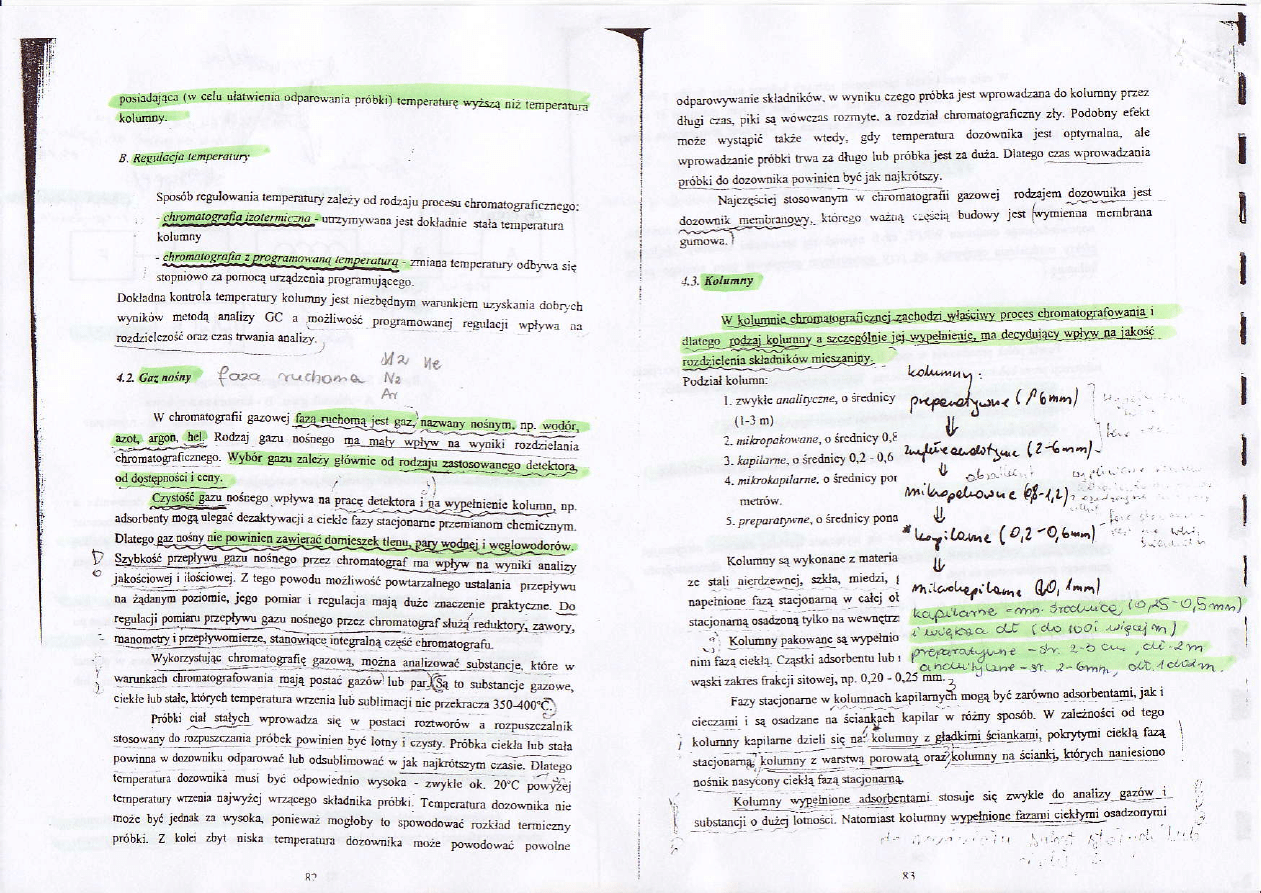 posiadająca (w celu ułatwienia odparowania próbki) temperaturę wyższą niż temperatura
kolumny.
B. Regulacja temperatury
Sposób regulowania temperatury zależy od rodzaju procesu chromatograficznego:
- chromatografia izotermiczna - utrzymywana jest dokładnie stała temperatura
kolumny
- chromatografia z programowaną temperaturą - zmiana temperatury odbywa się
stopniowo za pomocą urządzenia programującego.
Dokładna kontrola temperatury kolumny jest niezbędnym warunkiem uzyskania dobrych
wyników metodą analizy GC a możliwość programowanej regulacji wpływa na
rozdzielczość oraz czas trwania analizy.
H2 He
4.2. Gaz nośny faza ruchoma N2
Ar
W chromatografii gazowej fazą ruchomą jest gaz, nazwany nośnym, np. wodór,
azot, argon, hel. Rodzaj gazu nośnego ma mały wpływ na wyniki rozdzielania
chromatograficznego. Wybór gazu zależy głównie od rodzaju zastosowanego detektora,
od dostępności i ceny.
Czystość gazu nośnego wpływa na pracę detektora i na wypełnienie kolumn, np.
adsorbenty mogą ulegać dezaktywacji a ciekłe fazy stacjonarne przemianom chemicznym.
Dlatego gaz nośny nie powinien zawierać domieszek tlenu, pary wodnej i węglowodorów.
Szybkość przepływu gazu nośnego przez chromatograf ma wpływ na wyniki analizy
jakościowej i ilościowej. Z tego powodu możliwość powtarzalnego ustalania przepływu
na żądanym poziomie, jego pomiar i regulacja mają duże znaczenie praktyczne. Do
regulacji pomiaru przepływu gazu nośnego przez chromatograf służą reduktory, zawory,
manometry i przepływomierze, stanowiące integralną część chromatografu.
Wykorzystując chromatografię gazową, można analizować substancje, które w
warunkach chromatografowania mają postać gazów lub par. Są to substancje gazowe,
ciekłe lub stałe, których temperatura wrzenia lub sublimacji nie przekracza 350-400°C.
Próbki ciał stałych wprowadza się w postaci roztworów a rozpuszczalnik
stosowany do rozpuszczania próbek powinien być lotny i czysty. Próbka ciekła lub stała
powinna w dozowniku odparować lub odsublimować w jak najkrótszym czasie. Dlatego
temperatura dozownika musi być odpowiednio wysoka - zwykle ok. 20°C powyżej
temperatury wrzenia najwyżej wrzącego składnika próbki. Temperatura dozownika nie
może być jednak za wysoka, ponieważ mogłoby to spowodować rozkład termiczny
próbki. Z kolei zbyt niska temperatura dozownika może powodować powolne
82
odparowywanie składników, w wyniku czego próbka jest wprowadzana do kolumny przez
długi czas, piki są wówczas rozmyte, a rozdział chromatograficzny zły. Podobny efekt
może wystąpić także wtedy, gdy temperatura dozownika jest optymalna, ale
wprowadzanie próbki trwa za długo lub próbka jest za duża. Dlatego czas wprowadzania
próbki do dozownika powinien być jak najkrótszy.
Najczęściej stosowanym w chromatografii gazowej rodzajem dozownika jest
dozownik membranowy, którego ważną częścią budowy jest wymienna membrana
gumowa.
4.3. Kolumny
W kolumnie chromatograficznej zachodzi właściwy proces chromatografowania i
dlatego rodzaj kolumny a szczególnie jej wypełnienie, ma decydujący wpływ na jakość
rozdzielenia składników mieszaniny.
Podział kolumn:
1. zwykłe analityczne, o średnicy
(1-3 m)
2. mikropakowane, o średnicy 0,8
3. kapilarne, o średnicy 0,2 - 0,6
4. mikrokapilarne, o średnicy po
metrów.
5. preparatywne, o średnicy pona
kolumny:
preparatywne (↑6mm)
⇓
zwykłe analityczne (2-6mm)
⇓
mikropakowane (0,8-1,2)
⇓
* kapilarne (0,2-0,6mm)
⇓
mikrokapilarne (0,1mm)
Kolumny są wykonane z materia
ze stali nierdzewnej, szkła, miedzi,
napełnione fazą stacjonarną w całej ob
stacjonarną osadzoną tylko na wewnętrz
Kolumny pakowane są wypełnio
nim fazą ciekłą. Cząstki adsorbentu lub
kapilarne - mn. średnicę (0,25-0,5mm)
i większa dł. (do 100 i więcej m)
preparatywne - śr. 2-5 cm, dł. -2m
analityczne - śr. 2-6mm, dł. 1 do 2m.
wąski zakres frakcji sitowej, np. 0,20 - 0,25 mm.
Fazy stacjonarne w kolumnach kapilarnych mogą być zarówno adsorbentami, jak i
cieczami i są osadzane na ściankach kapilar w różny sposób. W zależności od tego
kolumny kapilarne dzieli się na: kolumny z gładkimi ściankami, pokrytymi ciekłą fazą
stacjonarną, kolumny z warstwą porowatą oraz kolumny na ścianki, których naniesiono
nośnik nasycony ciekłą fazą stacjonarną.
Kolumny wypełnione adsorbentami stosuje się zwykle do analizy gazów i
substancji o dużej lotności. Natomiast kolumny wypełnione fazami ciekłymi osadzonymi
83